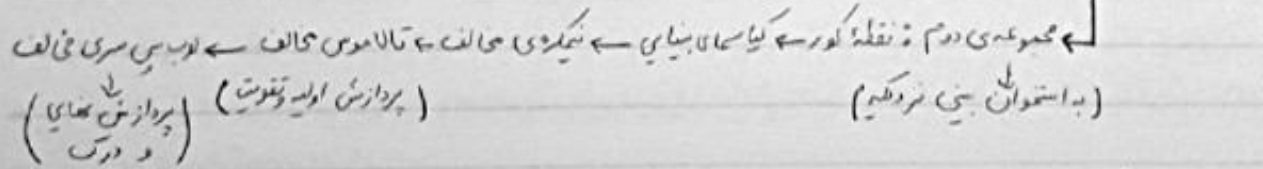 ← مجموعه‌ی دوم : نقطهٔ کور ← کیاسمای بینایی ← نیمکره‌ی مخالف ← تالاموس مخالف ← لوب پس سری مخالف
(به استخوان بینی نزدیکه) (پردازش اولیه و تقویت) (پردازش نهایی
و درک)